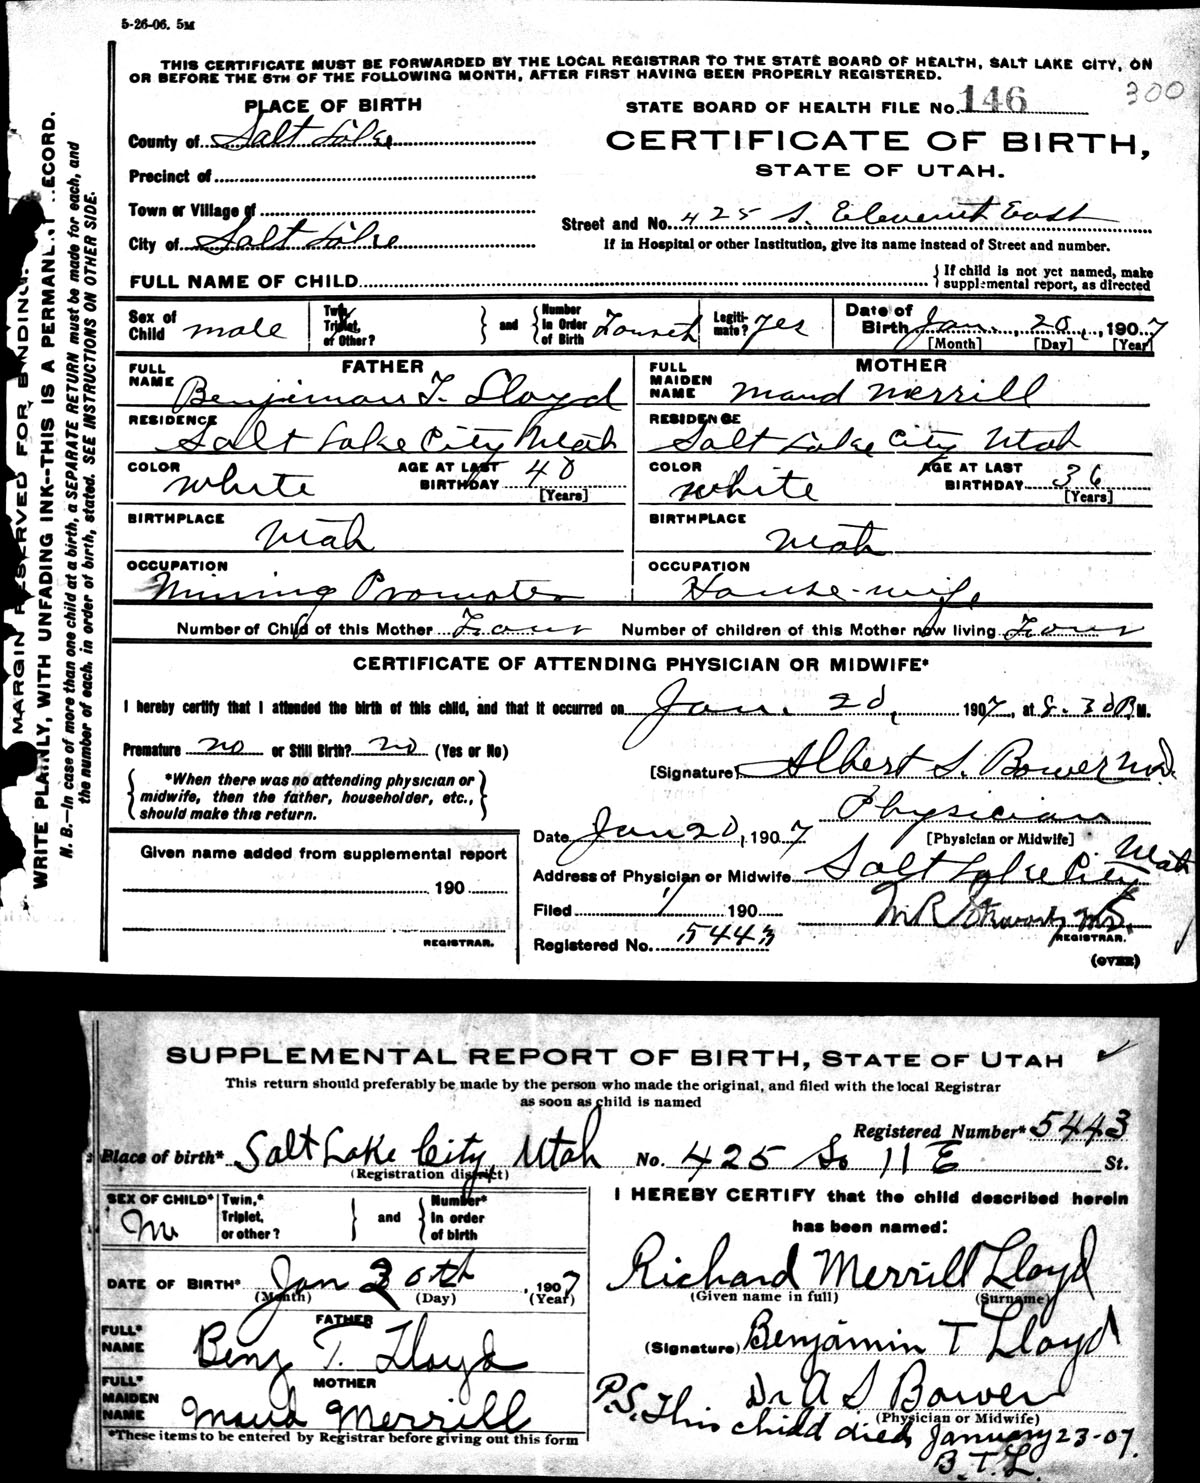 5-26-06. 5M
THIS CERTIFICATE MUST BE FORWARDED BY THE LOCAL REGISTRAR TO THE STATE BOARD OF HEALTH, SALT LAKE CITY, ON
OR BEFORE THE 5TH OF THE FOLLOWING MONTH, AFTER FIRST HAVING BEEN PROPERLY REGISTERED.
PLACE OF BIRTH
STATE BOARD OF HEALTH FILE NO. 146 300
County of Salt Lake
CERTIFICATE OF BIRTH,
STATE OF UTAH.
Precinct of
Town or Village of
Street and No. 425 S. Eleventh East
City of Salt Lake
If in Hospital or other Institution, give its name instead of Street and number.
FULL NAME OF CHILD
If child is not yet named, make
supplemental report, as directed
Sex of Child male
Twin, Triplet, or Other?
and
Number in Order of Birth Fourth
Legiti-mate? Yes
Date of Birth Jan. 20, 1907
[Month] [Day] [Year]
FATHER
FULL NAME Benjiman T. Lloyd
MOTHER
FULL MAIDEN NAME Maud Merrill
RESIDENCE Salt Lake City Utah
RESIDENCE Salt Lake City Utah
COLOR White AGE AT LAST BIRTHDAY 40 [Years]
COLOR White AGE AT LAST BIRTHDAY 36 [Years]
BIRTHPLACE Utah
BIRTHPLACE Utah
OCCUPATION Mining Promoter
OCCUPATION House-wife
Number of Child of this Mother Four Number of children of this Mother now living Four
CERTIFICATE OF ATTENDING PHYSICIAN OR MIDWIFE*
I hereby certify that I attended the birth of this child, and that it occurred on Jan. 20, 1907, at 8.30 P. M.
Premature no or Still Birth? no (Yes or No)
*When there was no attending physician or
midwife, then the father, householder, etc.,
should make this return.
[Signature] Albert S. Bower M.D.
Physician
[Physician or Midwife]
Date Jan 20, 1907
Address of Physician or Midwife Salt Lake City Utah
Filed 190
Registered No. 5443
REGISTRAR.
(OVER)
Given name added from supplemental report
190
REGISTRAR.
MARGIN RESERVED FOR BINDING.
WRITE PLAINLY, WITH UNFADING INK--THIS IS A PERMANENT RECORD.
N. B.—In case of more than one child at a birth, a SEPARATE RETURN must be made for each, and
the number of each, in order of birth, stated. SEE INSTRUCTIONS ON OTHER SIDE.
SUPPLEMENTAL REPORT OF BIRTH, STATE OF UTAH
This return should preferably be made by the person who made the original, and filed with the local Registrar
as soon as child is named
Registered Number* 5443
Place of birth* Salt Lake City Utah No. 425 So 11 E St.
(Registration district)
SEX OF CHILD* M
Twin,* Triplet, or other?
and
Number* In order of birth
I HEREBY CERTIFY that the child described herein
has been named:
Richard Merrill Lloyd
(Given name in full) (Surname)
DATE OF BIRTH* Jan 20th, 1907
(Month) (Day) (Year)
FATHER
FULL* NAME Benj T. Lloyd
(Signature) Benjamin T Lloyd
MOTHER
FULL* MAIDEN NAME Maud Merrill
Dr A S Bower
(Physician or Midwife)
*These items to be entered by Registrar before giving out this form
P.S. This child died January 23-07.
B.T.L